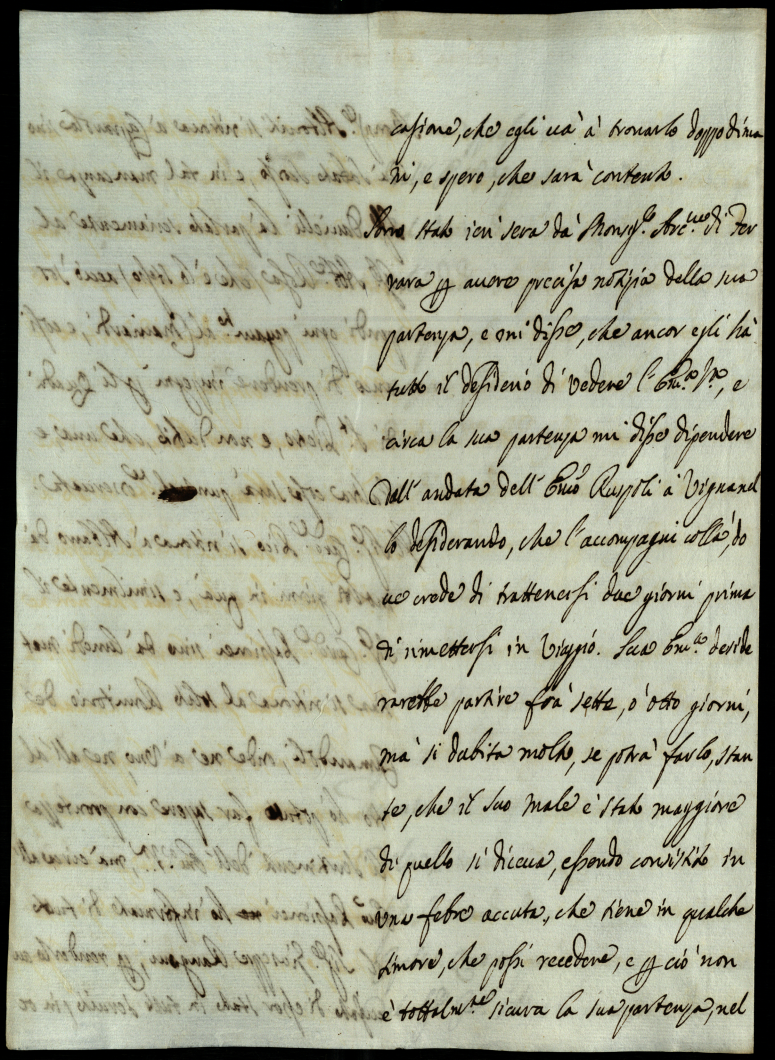 casione, che egli uà à trouarlo doppo dima
ni, e spero, che sarà contento.
Sono stato ieri sera dà Monsig.re Arc.uo di Fer
rara p auere precisa notizia della sua
partenza, e mi disse, che ancor egli hà
tutto il desiderio di vedere l'Em.a V.ra, e
circa la sua partenza mi disse dipendere
dall'andata dell'Emo Ruspoli à Vignanel
lo desiderando, che l'accompagni collà, do
ue crede di trattenersi due giorni prima
di rimettersi in viaggio. Sua Em.a deside
rarebbe partire frà sette, ò otto giorni,
mà si dubita molto, se potrà farlo, stan
te, che il suo male è stato maggiore
di quello si diceua, essendo consistito in
una febre accuta, che tiene in qualche
timore, che possi recedere, e p ciò non
è tottalm.te sicura la sua partenza, nel